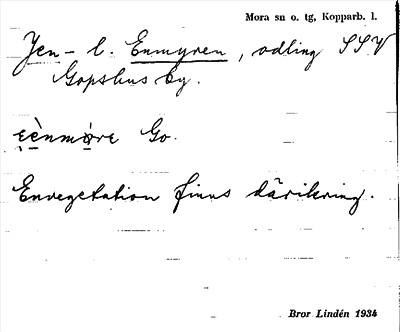 Mora sn o. tg, Kopparb. l.
Yen- l. Enmyren, odling SSV
Gopshus by.
Go.
Envegetation finns därikring.
Bror Lindén 1934